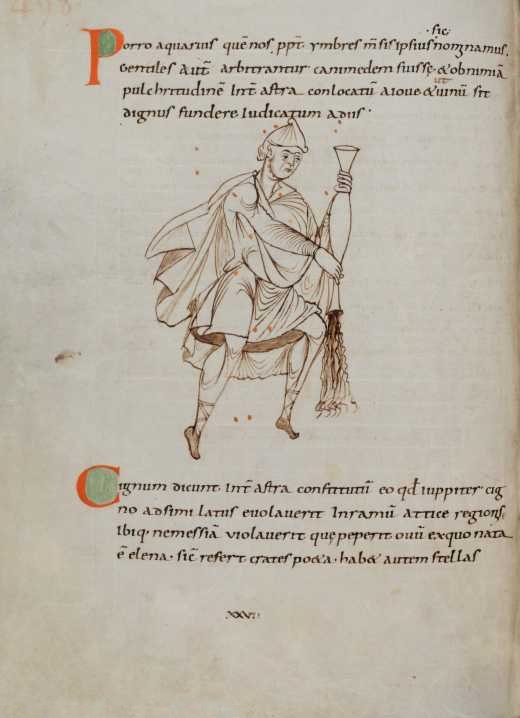 sic
Porro aquarius quē nos ppt̄ ymbres m̄sis ipsius nominamus.
Gentiles Aut̄ arbitrantur canmedem fuisse &ob nimiā
ut
pulchritudinē Int̄ astra conlocatū aIoue &uinū sit
dignus fundere Iudicatum adiis.
Cignum dicunt Int̄ astra constitutū eo qđ iuppiter cig
no adsimilatus euolauerit Inramū Attice regionis,
Ibiq· nemessiā uiolauerit quę peperit ouū exquo nata
ē elena· sic̄ refert crates po&a· hab& autem stellas
·XXVI·